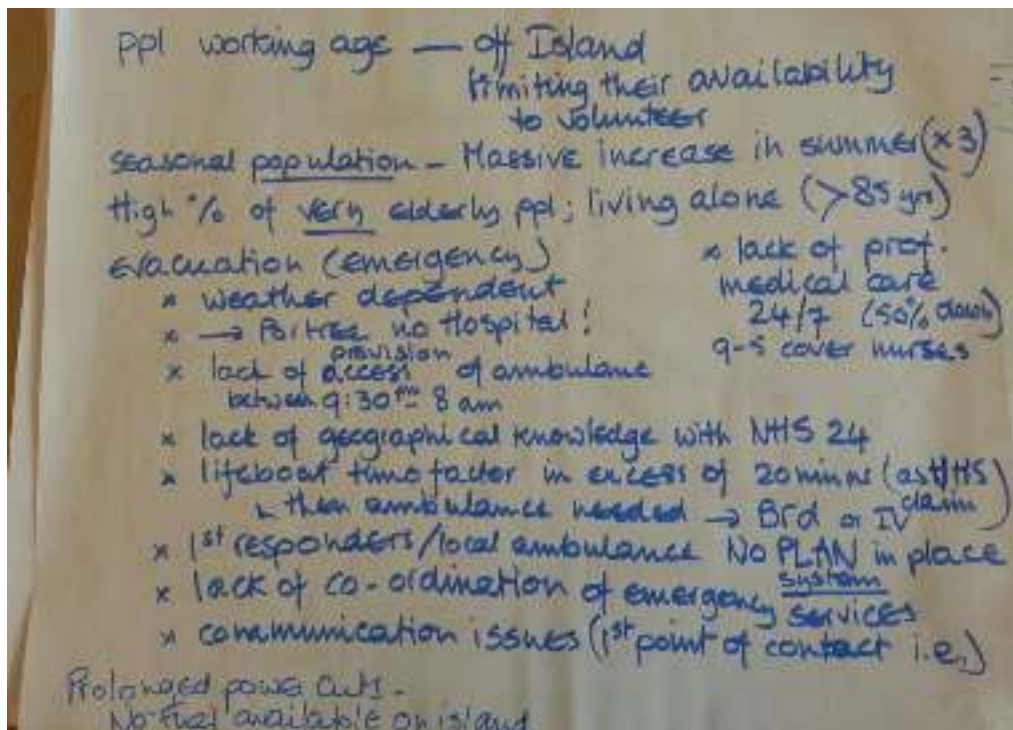 ppl working age — off Island
limiting their availability
to volunteer
seasonal population - Massive increase in summer (x3)
High % of very elderly ppl; living alone (>85 yr)
evacuation (emergency)
x weather dependent
x → Portree no Hospital!
provision
x lack of access of ambulance
between 9:30pm - 8 am
x lack of prof.
medical care
24/7 (50% down)
9-5 cover nurses
x lack of geographical knowledge with NHS 24
x lifeboat time factor in excess of 20 mins (as NHS
claim)
↳ then ambulance needed → Brd or IV
x 1st responders/local ambulance NO PLAN in place
x lack of co-ordination of emergency services
system
x communication issues (1st point of contact i.e.)
Prolonged power cuts -
No fuel available on island